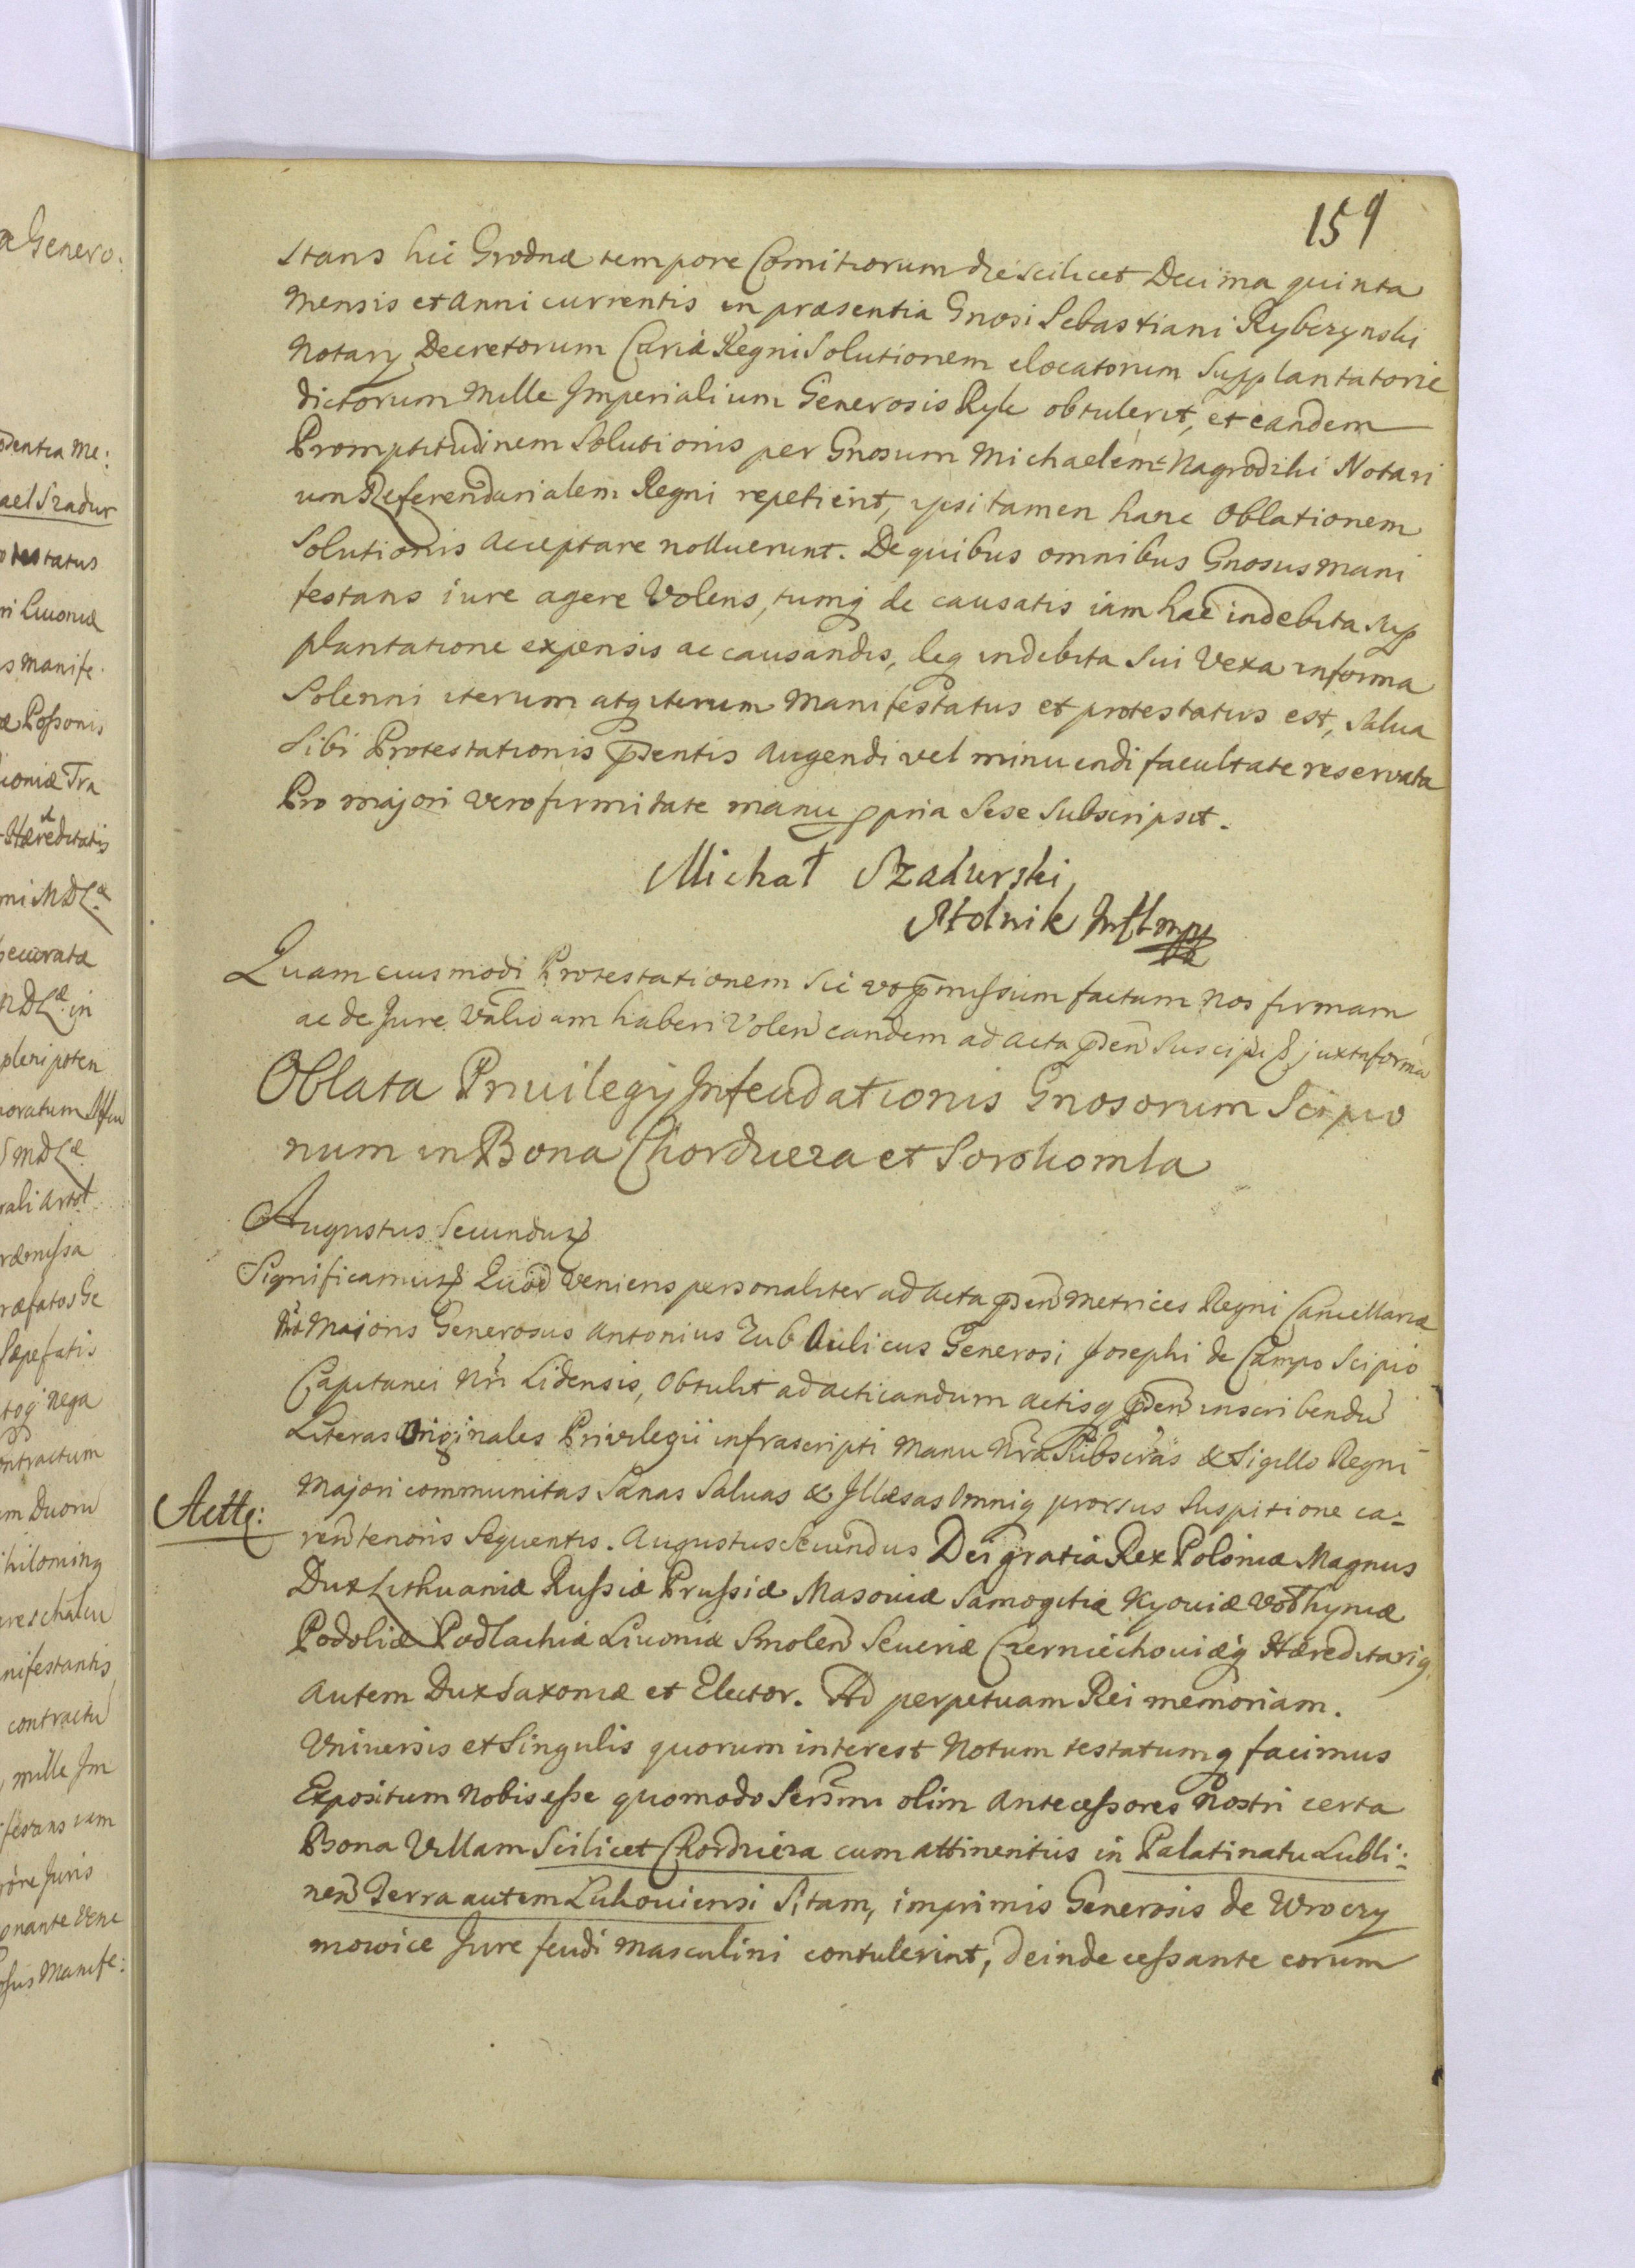 159
stans hic Grodnæ tempore Comitiorum die scilicet Decima quinta
Mensis et Anni currentis in præsentia Gnosi Sebastiani Rybczynski
Notarÿ Decretorum Curiæ Regni Solutionem elocatorum Supplantatorie
dictorum Mille Imperialium Generosis Ryk obtulerit, et eandem
Promptitudinem Solutionis per Gnosum Michaelem Nagrodzki Notari
um Referendarialem Regni repetierit, ipsi tamen hanc Oblationem
Solutionis acceptare nolluerunt. De quibus omnibus Gnosus mani
festans iure agere Volens, tumq de causatis iam hac indebita sup
plantatione expensis ac causandis, deq indebita Sui Vexa in forma
Solenni iterum atq iterum Manifestatus et protestatus est, Salua
Sibi Protestationis pñtis augendi vel minuendi facultate reservata
Pro majori vero firmitate manu ppria Sese Subscripsit.
Michał Szadurski,
Stolnik Infl mpp
Quam eiusmodi Protestationem Sic vt pmissum factam Nos firmam
ac de Jure Validam haberi Volen eandem ad Acta pñ Suscipi & juxta forma
Oblata Priuilegÿ Infeudationis Gnosorum Scipio
num in Bona Chordzieza et Sorokomla
Augustus Secundus
Significamus Quod Veniens personaliter ad Acta pñ Metrices Regni Cancellariæ
Nræ Majoris Generosus Antonius Zub Aulicus Generosi Josephi de Campo Scipio
Capitanei Nri Lidensis, Obtulit ad acticandum Actisq pñ inscribendū
Literas Originales Privilegii infrascripti Manu Nra Subscras & Sigillo Regni
Actt:
Majori communitas Sanas Saluas & Illæsas Omniq prorsus Suspitione ca=
ren tenoris Sequentis. Augustus Secundus Dei gratia Rex Poloniæ Magnus
Dux Lithuaniæ Russiæ Prussiæ Masoviæ Samogitiæ Kyoviæ Volhyniæ
Podoliæ Podlachiæ Livoniæ Smolen Seueriæ Czerniechoviæq Hæreditariq
Autem Dux Saxoniæ et Elector. Ad perpetuam Rei memoriam.
Vniuersis et Singulis quorum interest Notum testatumq facimus
Expositum Nobis esse quomodo Serssmi olim Antecessores Nostri certa
Bona Villam Scilicet Chordzieza cum attinentiis in Palatinatu Lubli=
nen Terra autem Lukouiensi Sitam, imprimis Generosis de Wroczy
mowice Jure feudi Masculini contulerint, deinde cessante eorum